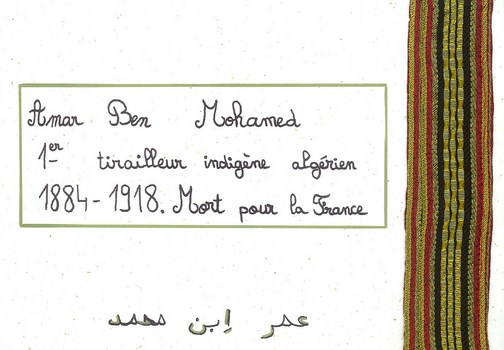 Amar Ben Mohamed
1er tirailleur indigène algérien
1884-1918. Mort pour la France
عمر إبن محمد